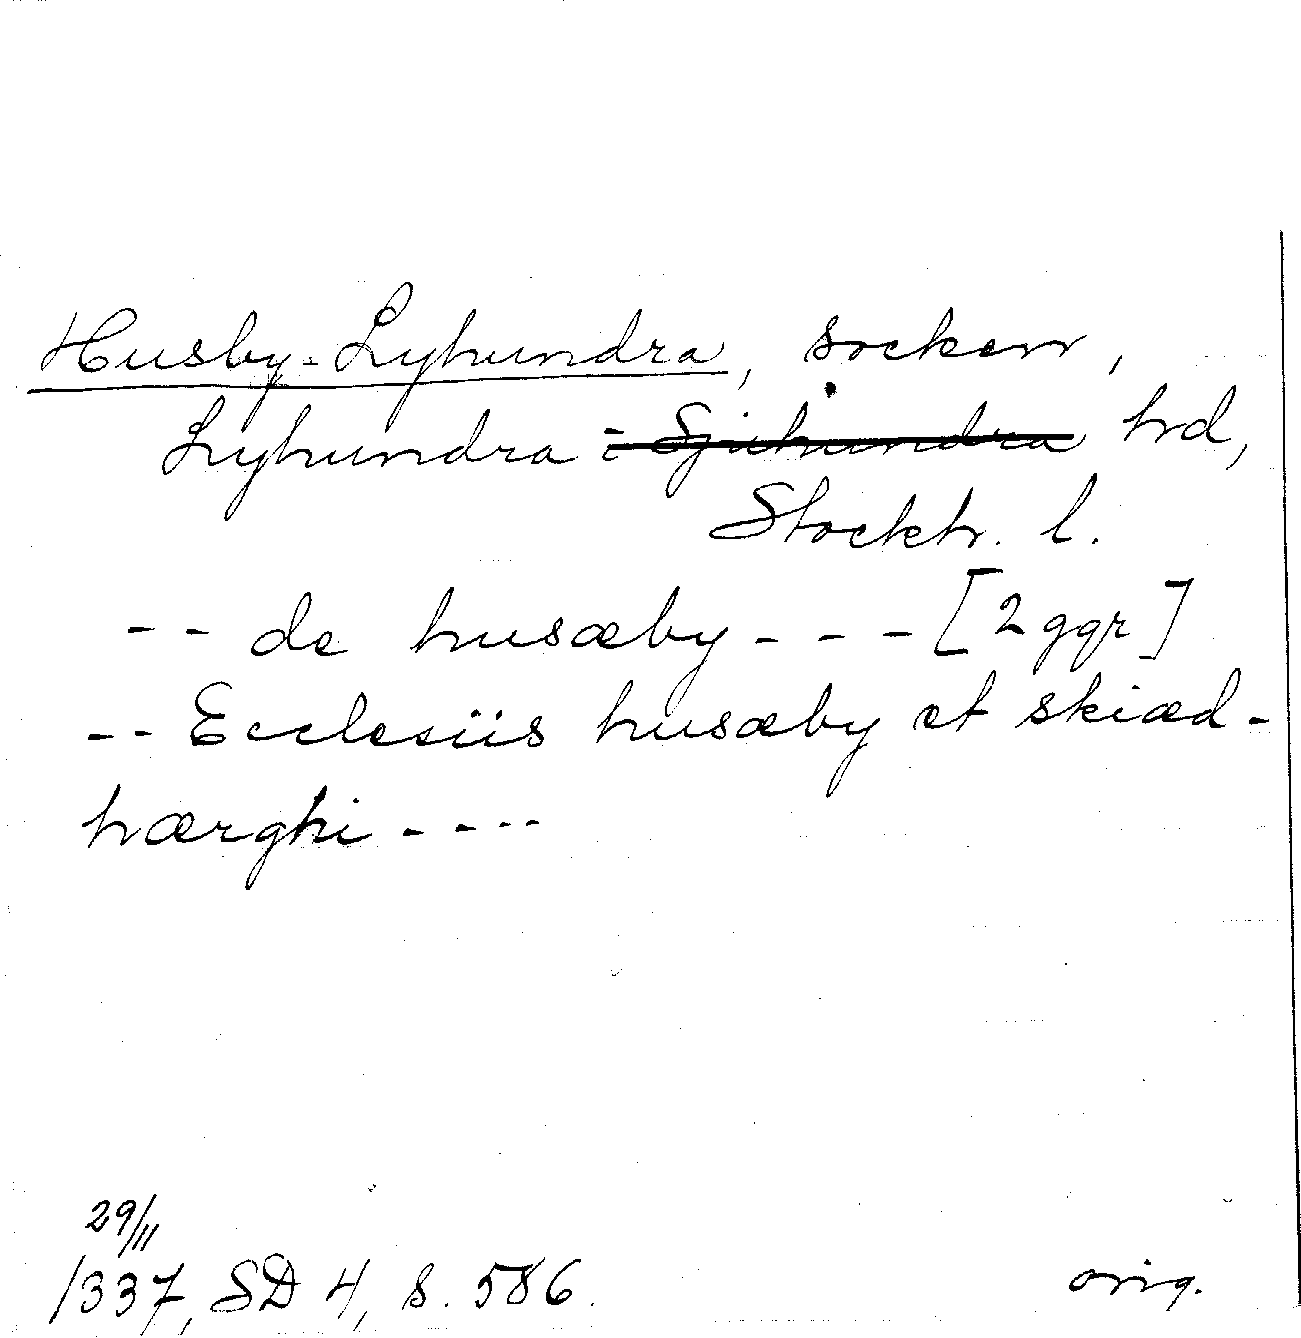 Husby-Lyhundra, socken,
Lyhundra - Sjuhundra hd,
Stockh. l.
-- de husæby --- [2 ggr]
-- Ecclesiis husæby et skiæd-
hærghi ----
29/11
1337, SD 4, s. 586. orig.